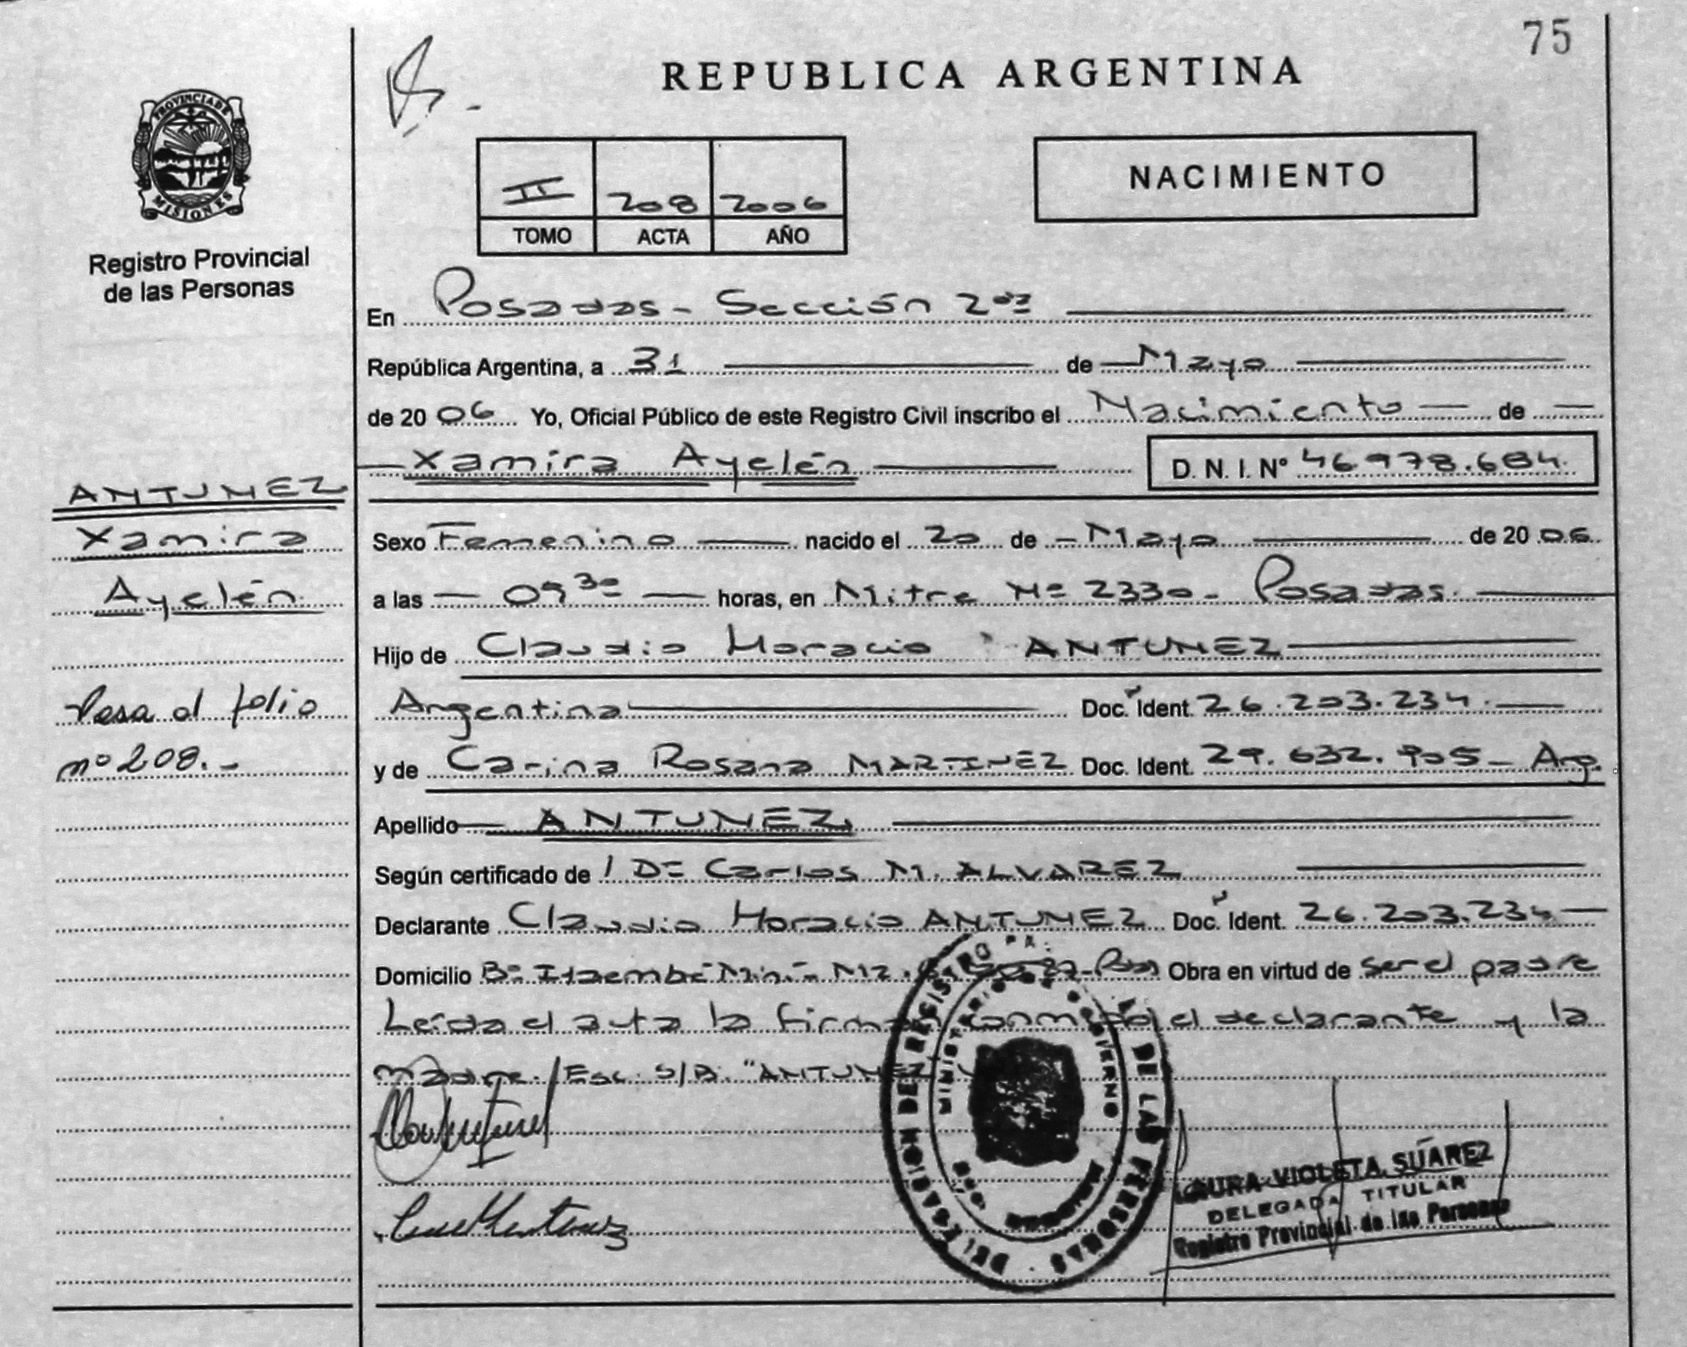 75
REPUBLICA ARGENTINA
PROVINCIA DE
MISIONES
Registro Provincial
de las Personas
NACIMIENTO
II 208 2006
TOMO ACTA AÑO
En Posadas - Sección 2da
República Argentina, a 31 de Mayo
de 2006 Yo, Oficial Público de este Registro Civil inscribo el Nacimiento de
Xamira Ayelén D. N. I. Nº 46.978.684.
ANTUNEZ
Xamira
Ayelén
Pasa al folio
nº 208.-
Sexo Femenino nacido el 20 de Mayo de 2006
a las 09 30 horas, en Mitre Nº 2330 - Posadas.
Hijo de Claudio Horacio ANTUNEZ
Argentina Doc. Ident. 26.203.234.
y de Carina Rosana MARTINEZ Doc. Ident. 29.632.905 - Arg.
Apellido ANTUNEZ
Según certificado de Carlos M. ALVAREZ
Declarante Claudio Horacio ANTUNEZ Doc. Ident. 26.203.234
Domicilio Bº Itaembé Miní - Mz. Obra en virtud de ser el padre
Leída el acta la firman conmigo el declarante y la
madre. / Esc. s/R. "ANTUNEZ"
DELEGACION DE REGISTRO DE LAS PERSONAS
MINISTERIO DE GOBIERNO
LAURA VIOLETA SUÁREZ
DELEGADA TITULAR
Registro Provincial de las Personas